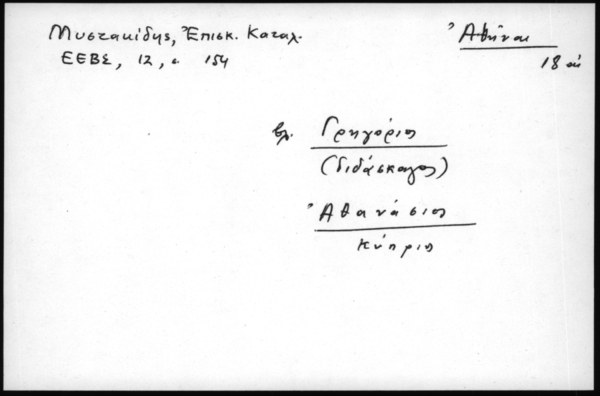 Μυστακίδης, Ἐπισκ. Καταλ.
ΕΕΒΣ, 12, σ 154
Ἀθῆναι
18 αἰ
βλ. Γρηγόριος
(διδάσκαλος)
Ἀθανάσιος
Κύπριος